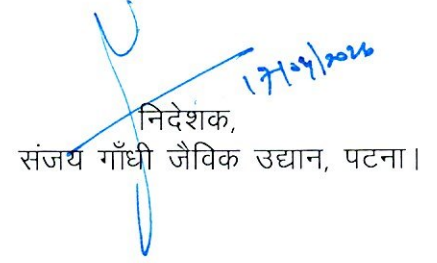 17/04/2026
निदेशक,
संजय गाँधी जैविक उद्यान, पटना।